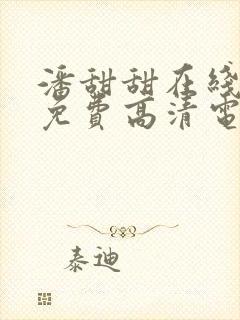 潘甜甜在线
免费高清电
泰迪